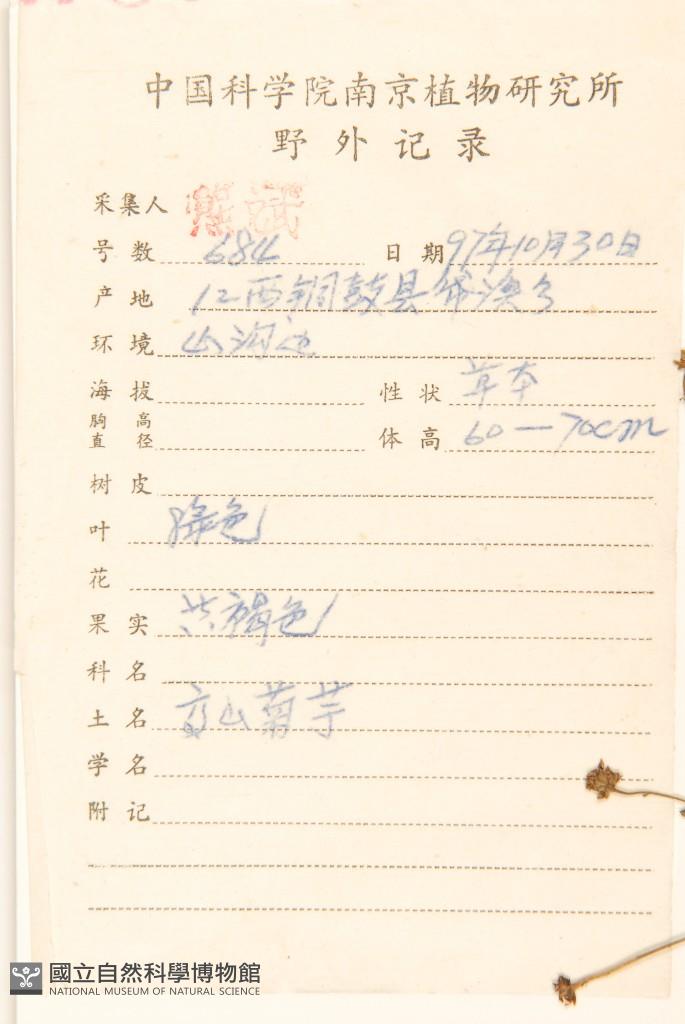 中国科学院南京植物研究所
野外记录
采集人 熊
号数 684 日期 97年10月30日
产地 江西铜鼓县
环境 山沟边
海拔 性状 草本
胸高直径 体高 60—70cm
树皮
叶 绿色
花
果实 黄褐色
科名
土名 高山菊芋
学名
附记
國立自然科學博物館
NATIONAL MUSEUM OF NATURAL SCIENCE